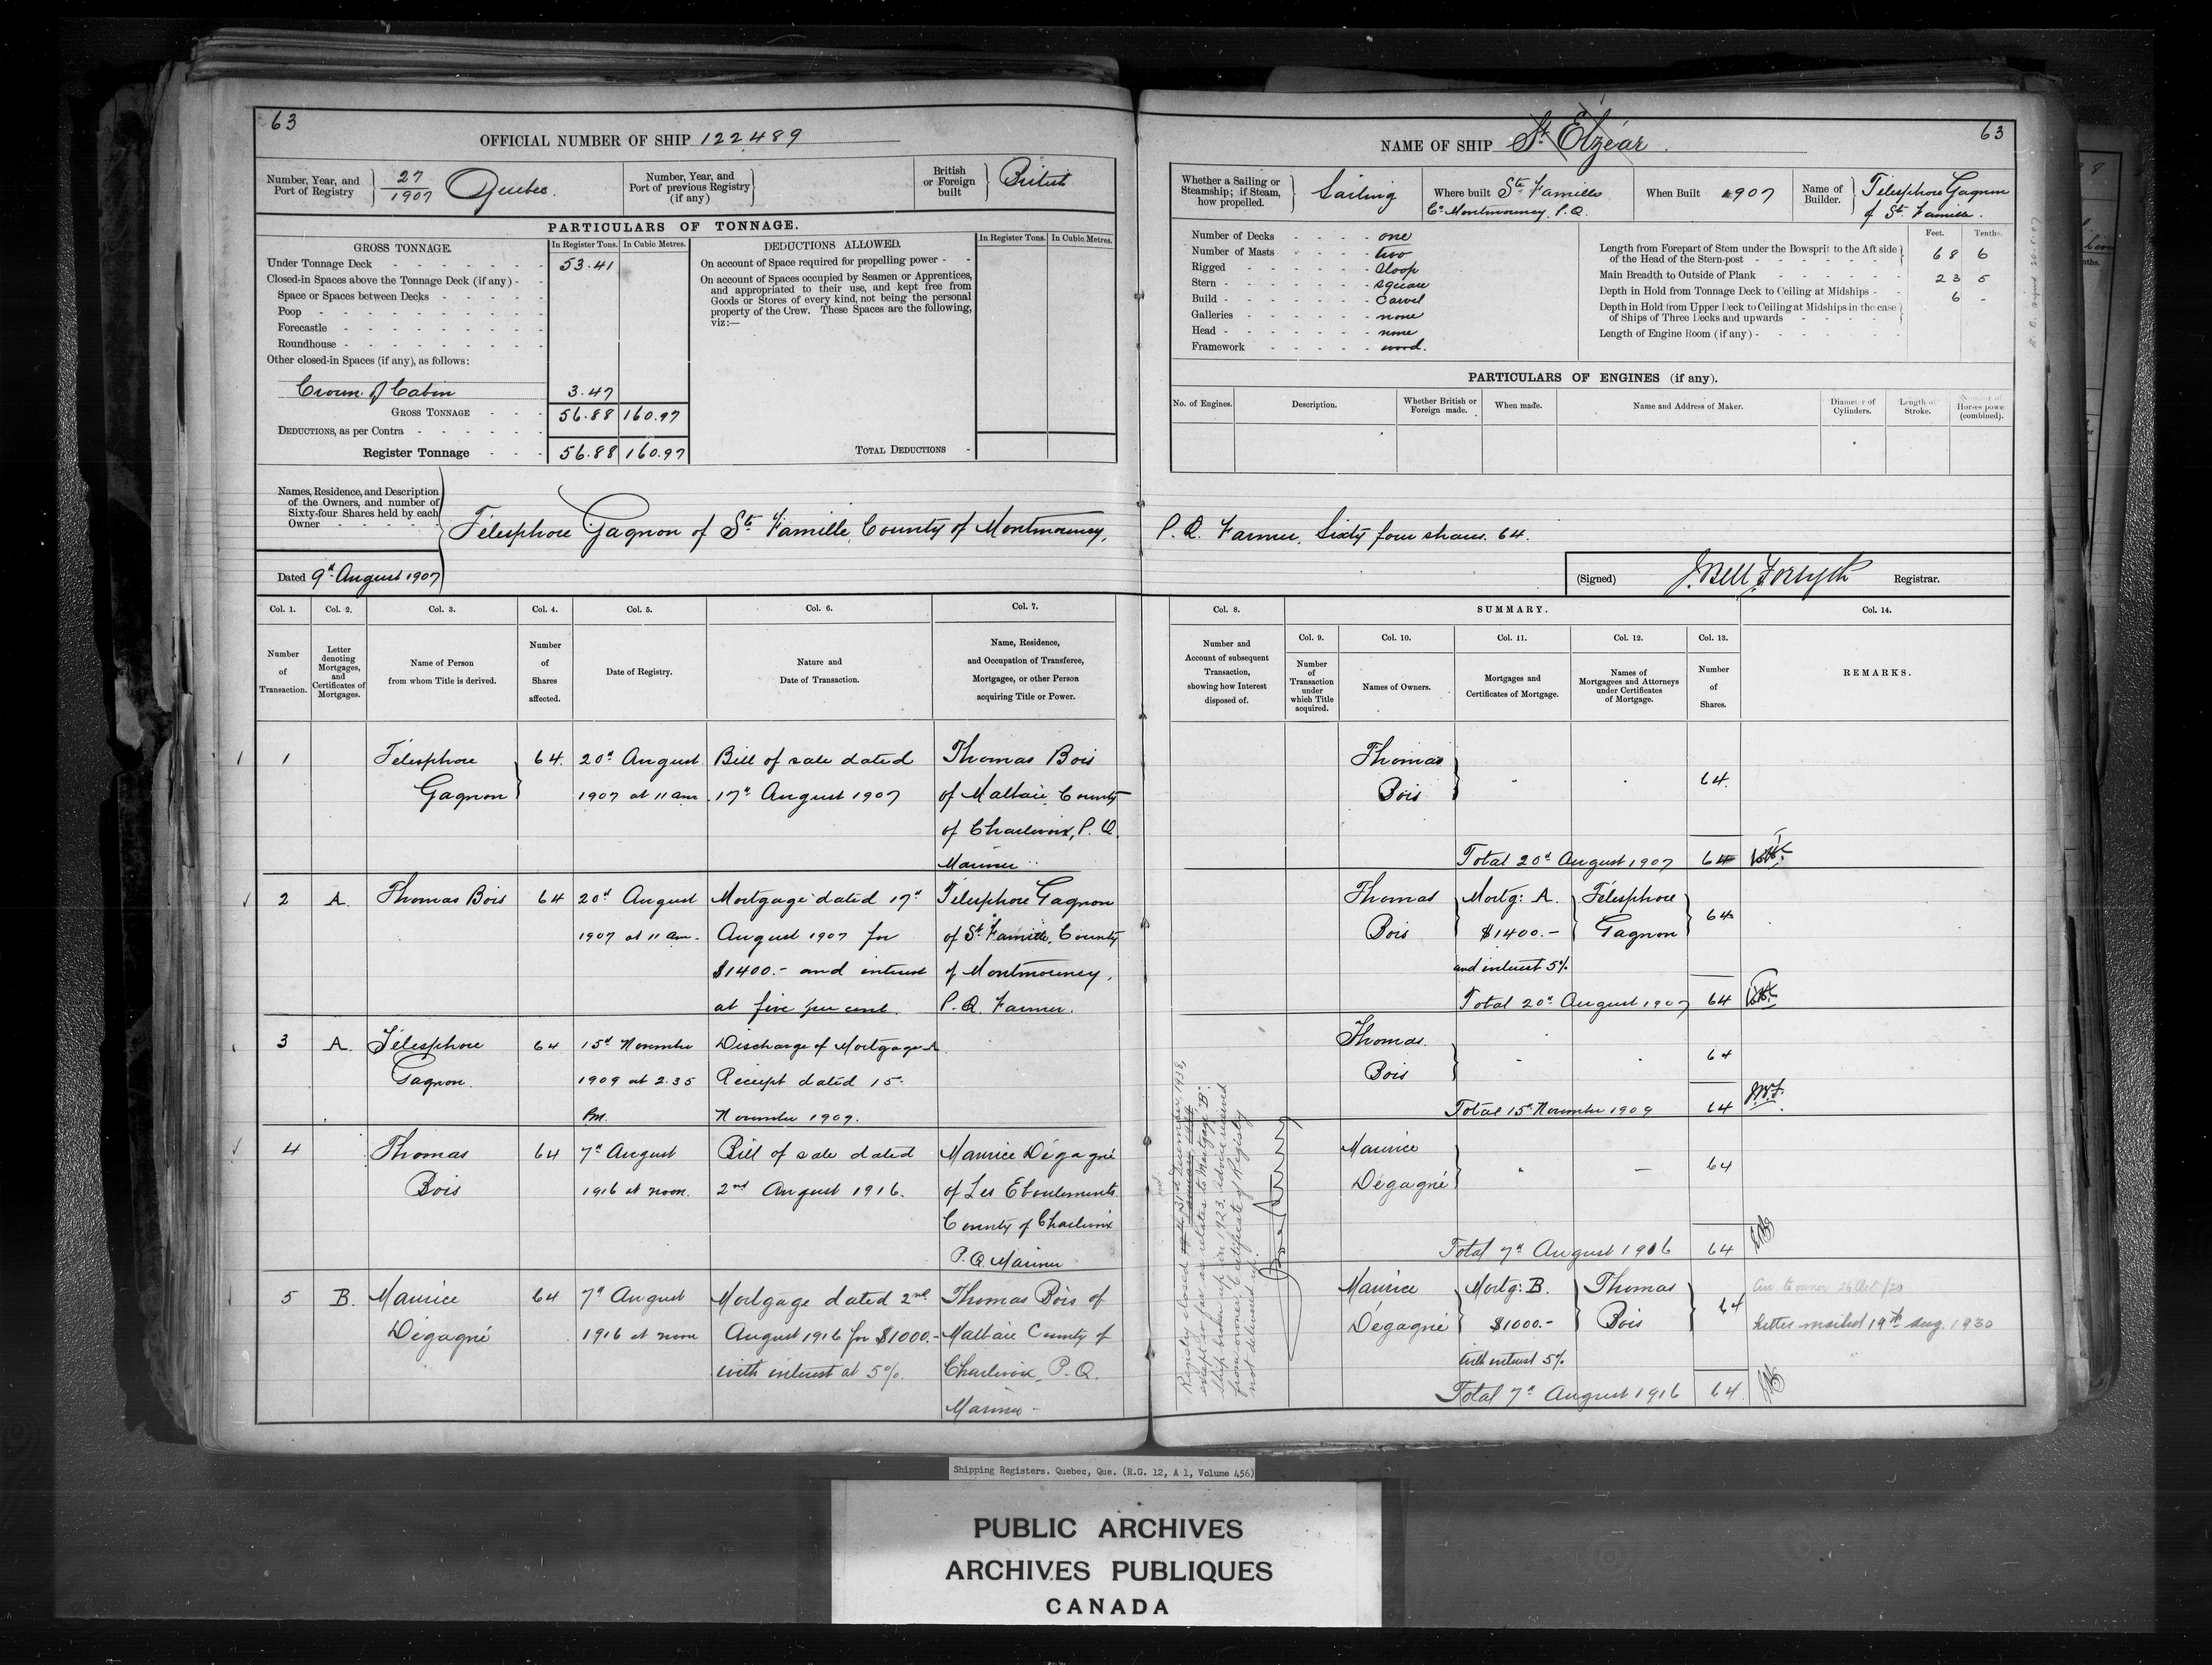 63
OFFICIAL NUMBER OF SHIP 122489
Number, Year, and Port of Registry 27/1907 Quebec.
Number, Year, and Port of previous Registry (if any)
British or Foreign built British
PARTICULARS OF TONNAGE.
GROSS TONNAGE. In Register Tons. In Cubic Metres.
Under Tonnage Deck 53.41
Closed-in Spaces above the Tonnage Deck (if any)
Space or Spaces between Decks
Poop
Forecastle
Roundhouse
Other closed-in Spaces (if any), as follows:
Crown of Cabin 3.47
GROSS TONNAGE 56.88 160.97
DEDUCTIONS, as per Contra
Register Tonnage 56.88 160.97
DEDUCTIONS ALLOWED. In Register Tons. In Cubic Metres.
On account of Space required for propelling power
On account of Spaces occupied by Seamen or Apprentices,
and appropriated to their use, and kept free from
Goods or Stores of every kind, not being the personal
property of the Crew. These Spaces are the following,
viz:—
TOTAL DEDUCTIONS
Names, Residence, and Description
of the Owners, and number of
Sixty-four Shares held by each
Owner
Télesphore Gagnon of Ste Famille, County of Montmorency,
Dated 9th August 1907
Col. 1. Col. 2. Col. 3. Col. 4. Col. 5. Col. 6. Col. 7.
Number of Transaction.
Letter denoting Mortgages, and Certificates of Mortgages.
Name of Person from whom Title is derived.
Number of Shares affected.
Date of Registry.
Nature and Date of Transaction.
Name, Residence, and Occupation of Transferee, Mortgagee, or other Person acquiring Title or Power.
1 Télesphore 64. 20th August Bill of sale dated Thomas Bois
Gagnon 1907 at 11 am. 17th August 1907 of Malbaie, County
of Charlevoix, P.Q.
Mariner
2 A. Thomas Bois 64 20th August Mortgage dated 17th Télesphore Gagnon
1907 at 11 am. August 1907 for of St Famille, County
$1400.- and interest of Montmorency,
at five per cent. P.Q. Farmer.
3 A. Télesphore 64 15th November Discharge of Mortgage A.
Gagnon. 1909 at 2.35 Receipt dated 15.
P.M. November 1909.
4 Thomas 64 7th August Bill of sale dated Maurice Dégagné
Bois 1916 at noon. 2nd August 1916. of Les Eboulements
County of Charlevoix
P.Q. Mariner
5 B. Maurice 64 7th August Mortgage dated 2nd Thomas Bois of
Dégagné 1916 at noon August 1916 for $1000.- Malbaie County of
with interest at 5%. Charlevoix, P.Q.
Mariner -
NAME OF SHIP St. Elzéar.
63
Whether a Sailing or Steamship; if Steam, how propelled. Sailing
Where built Ste Famille
Co Montmorency, P.Q.
When Built 1907
Name of Builder. Télesphore Gagnon
of St. Famille.
Number of Decks one
Number of Masts two
Rigged Sloop
Stern square
Build Carvel
Galleries none
Head none
Framework wood.
Feet. Tenths.
Length from Forepart of Stem under the Bowsprit to the Aft side
of the Head of the Stern-post 68 6
Main Breadth to Outside of Plank 23 5
Depth in Hold from Tonnage Deck to Ceiling at Midships 6 -
Depth in Hold from Upper Deck to Ceiling at Midships in the case
of Ships of Three Decks and upwards
Length of Engine Room (if any)
PARTICULARS OF ENGINES (if any).
No. of Engines. Description. Whether British or Foreign made. When made. Name and Address of Maker. Diameter of Cylinders. Length of Stroke. Number of Horses power (combined).
P.Q. Farmer, Sixty four shares. 64.
(Signed) J. Bell Forsyth Registrar.
Col. 8. SUMMARY. Col. 14.
Col. 9. Col. 10. Col. 11. Col. 12. Col. 13.
Number and Account of subsequent Transaction, showing how Interest disposed of.
Number of Transaction under which Title acquired.
Names of Owners.
Mortgages and Certificates of Mortgage.
Names of Mortgagees and Attorneys under Certificates of Mortgage.
Number of Shares.
REMARKS.
Thomas
Bois 64.
Total 20th August 1907 64
Thomas Mortg: A. Télesphore
Bois $1400.- Gagnon 64
and interest 5%
Total 20th August 1907 64
Thomas.
Bois 64
Total 15th November 1909 64 J.B.F.
Maurice
Dégagné 64
Total 7th August 1916 64
Maurice Mortg: B. Thomas
Dégagné $1000.- Bois 64
with interest 5%
Total 7th August 1916 64.
to owner 26 Oct /20
Letter mailed 19th Aug. 1930
Registry closed 31st December, 1938,
except so far as relates to Mortgage "B".
Ship broken up in 1923. Advice received
from owner. Certificate of Registry
not delivered up.
Shipping Registers. Quebec, Que. (R.G. 12, A 1, Volume 456)
PUBLIC ARCHIVES
ARCHIVES PUBLIQUES
CANADA